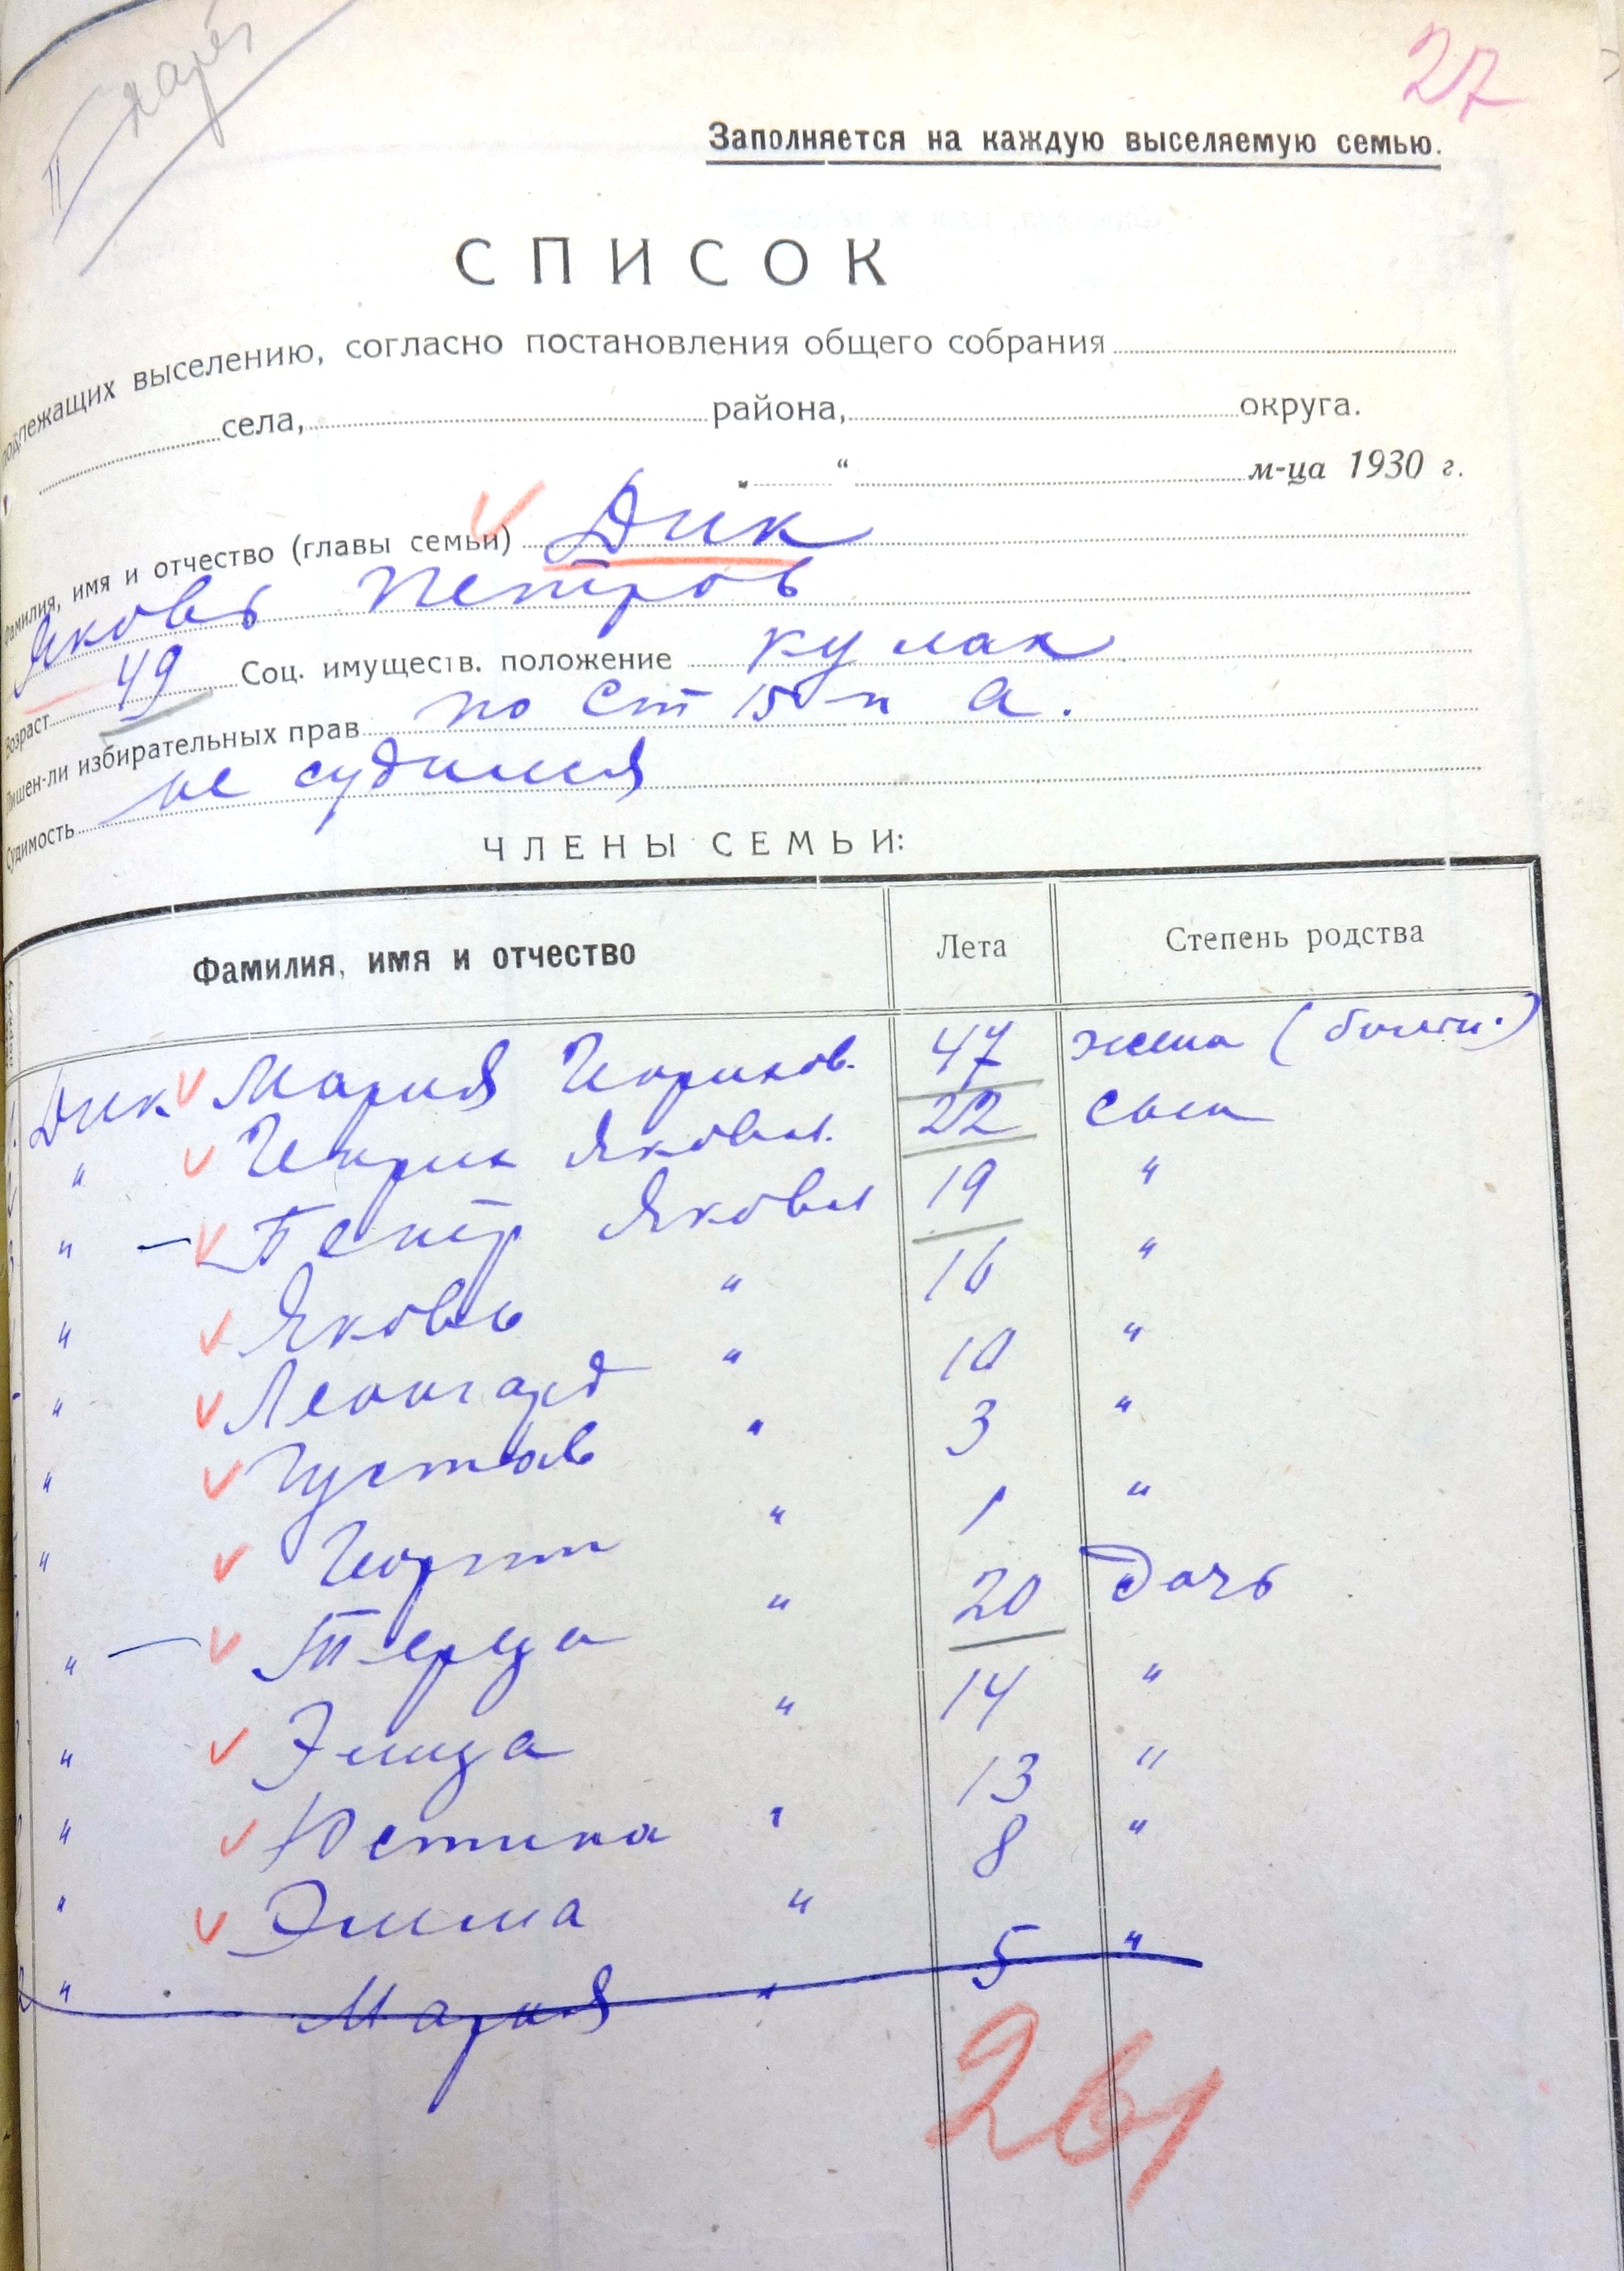 27
Заполняется на каждую выселяемую семью.
СПИСОК
подлежащих выселению, согласно постановления общего собрания
села, района, округа.
" " м-ца 1930 г.
Фамилия, имя и отчество (главы семьи) Дик
Яковъ Петров
Возраст 49 Соц. имуществ. положение кулак
Лишен-ли избирательных прав по ст 15 п а.
Судимость не судился
ЧЛЕНЫ СЕМЬИ:
Фамилия, имя и отчество Лета Степень родства
Дик Мария Генрихов. 47 жена
" Генрих Яковл. 22 сын
" Петр Яковл 19 "
" Яковъ " 16 "
" Леонгард " 10 "
" Густав " 3 "
" " 1 "
" " 20 дочь
" Элиза " 14 "
" Юстина " 13 "
" Эмма " 8 "
" Мария " 5 "
261